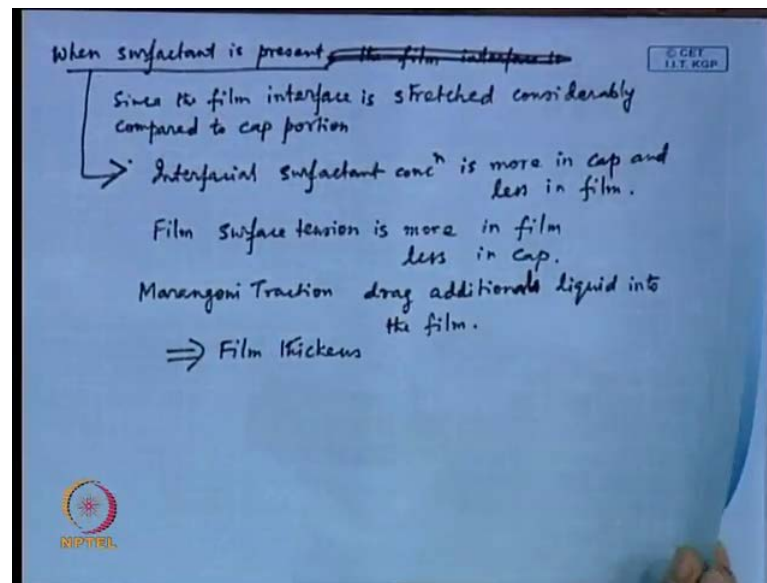 When surfactant is present the film interface is
© CET
I.I.T. KGP
Since the film interface is stretched considerably
compared to cap portion
Interfacial surfactant concⁿ is more in cap and
less in film.
Film surface tension is more in film
less in cap.
Marangoni Traction drag additional liquid into
the film.
⇒ Film thickens
NPTEL